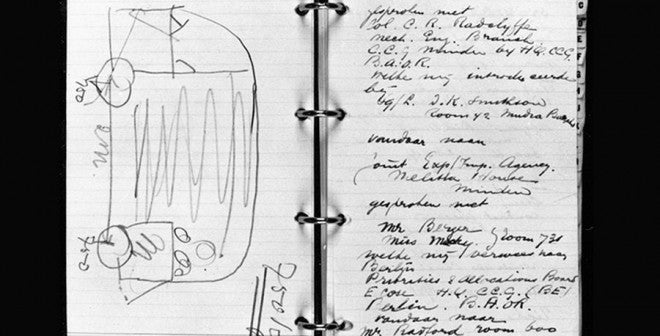 750
750
gesproken met
Col. C. R. Radclyffe
Mech. Eng. Branch
C.C.G. Minden by HQ. CCG
B.A.O.R.
welke mij introduceerde
bij
Room 42
vandaar naar
Joint Exp/Imp. Agency.
Melitta House
Minden
gesproken met
Mr. Berger
Miss room 730
welke mij verwees naar
Berlijn
Priorities & Allocations Board
H.Q. CCG. (BE)
Berlin. B.A.O.R.
vandaar naar
Mr Radford room 600
C
D
E
F